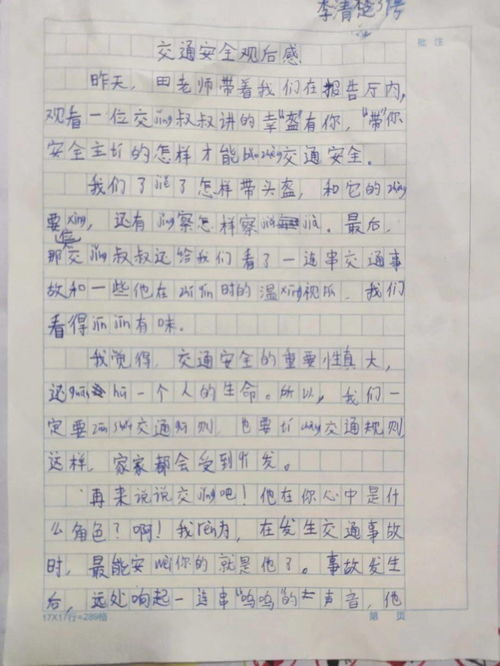 李清楚37号
批注
交通安全观后感
昨天，田老师带着我们在报告厅内，
观看一位交jǐng叔叔讲的幸“盔”有你，“带”你
安全主tí的怎样才能bǎo zhàng交通安全。
我们了jiě了怎样带头盔，和它的zhòng
要xìng，还有jǐng察怎样察jiǔ jià。最后，
那位交jǐng叔叔还给我们看了一连串交通事
故和一些他在zhí qín时的温xīng视pín，我们
看得jīn jīn有味。
我觉得，交通安全的重要性真大，
还guān hū一个人的生命。所以，我们一
定要zūn shǒu交通guī则，也要tí chàng交通规则
这样，家家都会受到qǐ发。
再来说说交jǐng吧！他在你心中是什
么角色？啊！我rèn为，在发生交通事故
时，最能安wèi你的就是他了。事故发生
后，远处响起一连串“呜呜”的声音，他
17X17行=289格
第 页